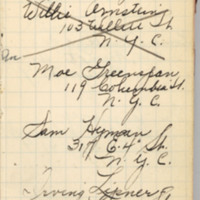 Willie Armstrong
103 Willett St.
N. Y. C.
Moe Greenspan
119 Columbia St.
N. Y. C.
Sam Hyman
317 E. 4 St.
N. Y. C.
Irving